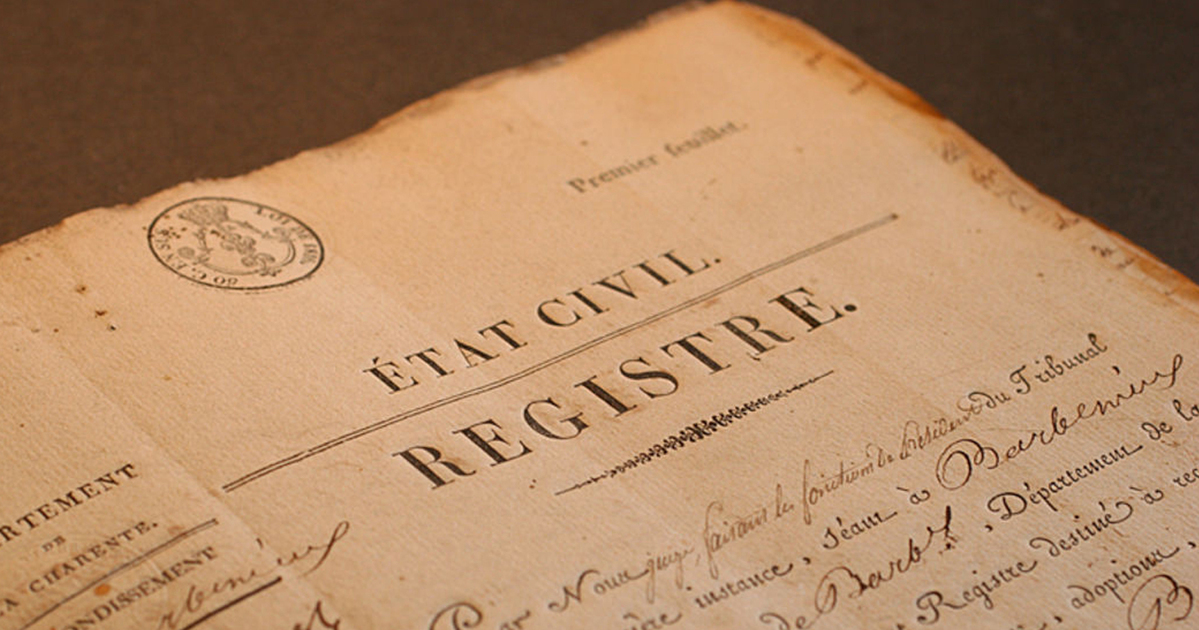 Premier feuillet.
ÉTAT CIVIL.
REGISTRE.
RTEMENT
DE
A CHARENTE.
NDISSEMENT
rbezieux
Par Nous juge, faisant les fonctions de Président du Tribunal
instance, séant à Barbezieux
de Barb , Département de la
Registre destiné à rec
, adoptions,
B